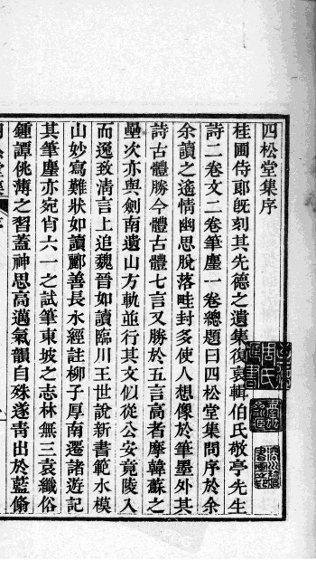 四松堂集序
桂圃侍郎旣刻其先德之遺集復裒輯伯氏敬亭先生
詩二卷文二卷筆塵一卷總題曰四松堂集問序於余
余讀之遙情幽思脫落畦封多使人想像於筆墨外其
詩古體勝今體古體七言又勝於五言高者摩韓蘇之
壘次亦與劍南遺山方軌並行其文似從公安竟陵入
而逸致清言上追魏晉如讀臨川王世說新書範水模
山妙寫難狀如讀酈善長水經註柳子厚南遷諸遊記
其筆塵亦宛肖六一之試筆東坡之志林無三袁纖俗
鍾譚佻薄之習蓋神思高邁氣韻自殊遂靑出於藍翛